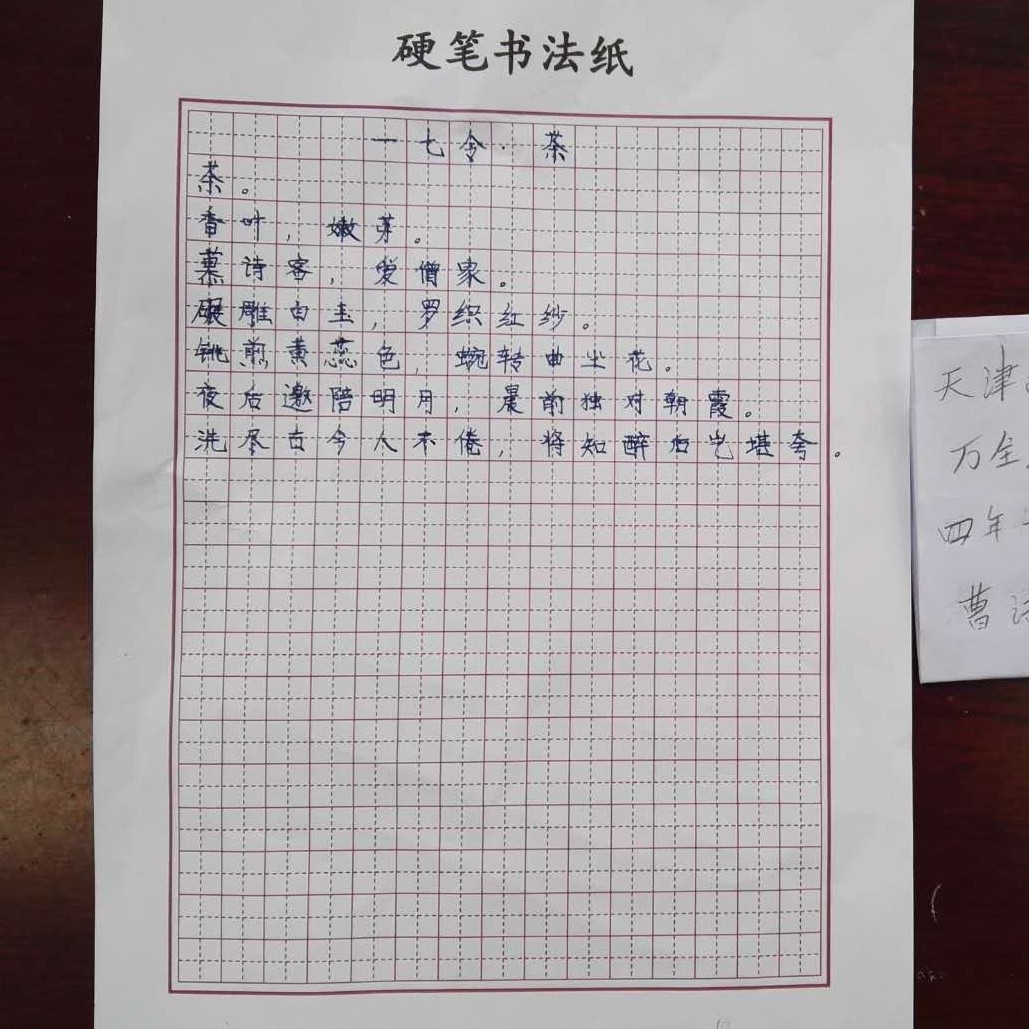 硬笔书法纸
一七令·茶
茶。
香叶，嫩芽。
慕诗客，爱僧家。
碾雕白玉，罗织红纱。
铫煎黄蕊色，蜿转曲尘花。
夜后邀陪明月，晨前独对朝霞。
洗尽古今人不倦，将知醉后岂堪夸。
天津
万全
四年
曹